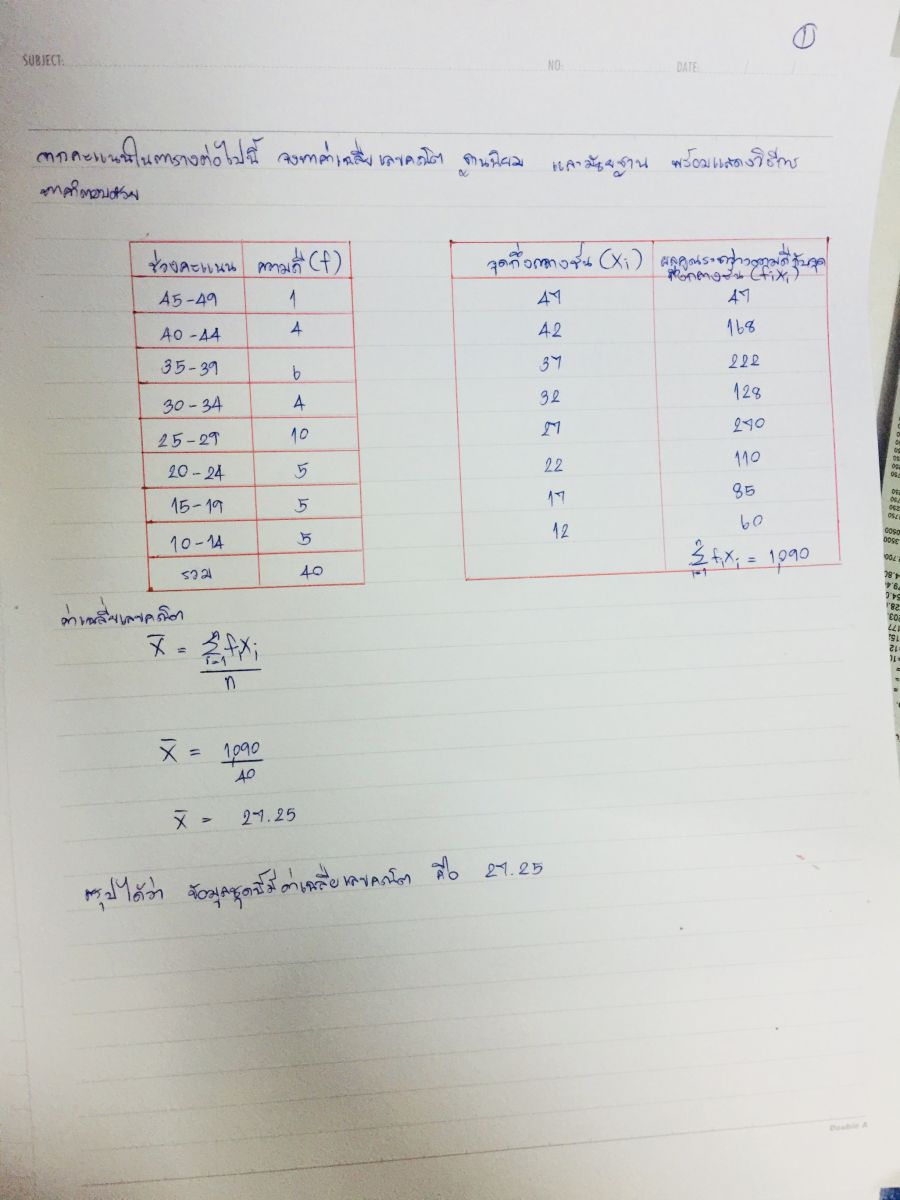 1
SUBJECT: NO: DATE: / /
จากคะแนนในตารางต่อไปนี้ จงหาค่าเฉลี่ยเลขคณิต ฐานนิยม และมัธยฐาน พร้อมแสดงวิธีการ
หาคำตอบด้วย
ช่วงคะแนน ความถี่ (f) จุดกึ่งกลางชั้น (Xi) ผลคูณระหว่างความถี่กับจุด
กึ่งกลางชั้น (fiXi)
45-49 1 47 47
40-44 4 42 168
35-39 6 37 222
30-34 4 32 128
25-29 10 27 270
20-24 5 22 110
15-19 5 17 85
10-14 5 12 60
รวม 40 n∑i=1 fiXi = 1,090
ค่าเฉลี่ยเลขคณิต
X̄ = n∑i=1 fiXi
n
X̄ = 1,090
40
X̄ = 27.25
สรุปได้ว่า ข้อมูลชุดนี้มีค่าเฉลี่ยเลขคณิต คือ 27.25
Double A